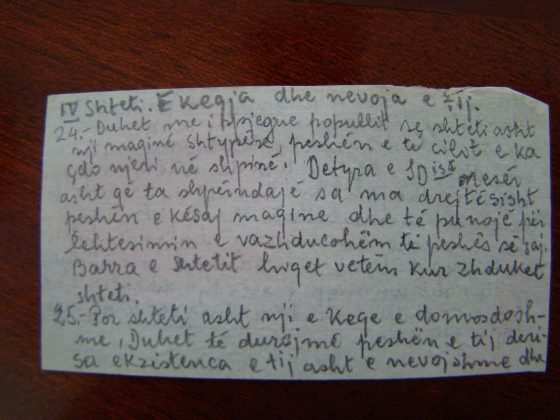 IV Shteti. E keqja dhe nevoja e tij.
24.- Duhet me i spjegue popullit se shteti asht
nji maginë shtypëse, peshën e të cilit e ka
çdo njeri në shpinë. Detyra e SD ist
asht që ta shpërndajë sa ma drejtësisht
peshën e kësaj magine dhe të punojë për
lehtësimin e vazhdueshëm të peshës së saj.
Barra e shtetit hiqet vetëm kur zhduket
shteti.
25.- Por shteti asht nji e keqe e domosdosh-
me, Duhet të durojmë peshën e tij deri-
sa ekzistenca e tij asht e nevojshme dhe